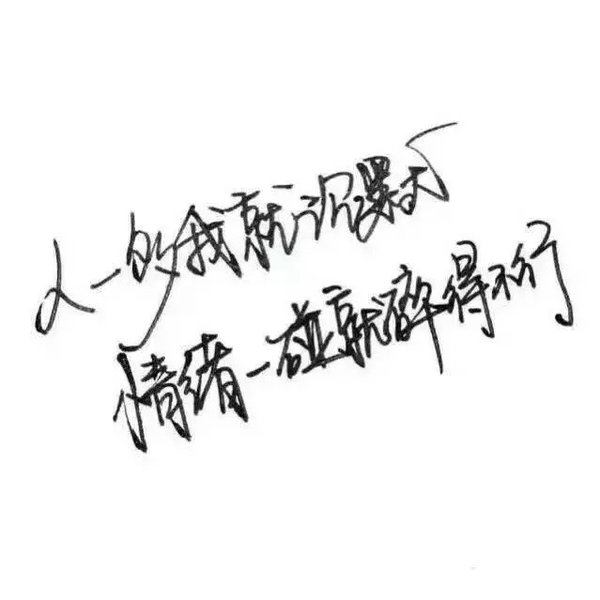 人一的我就沉默了
情绪一碰就碎得不行